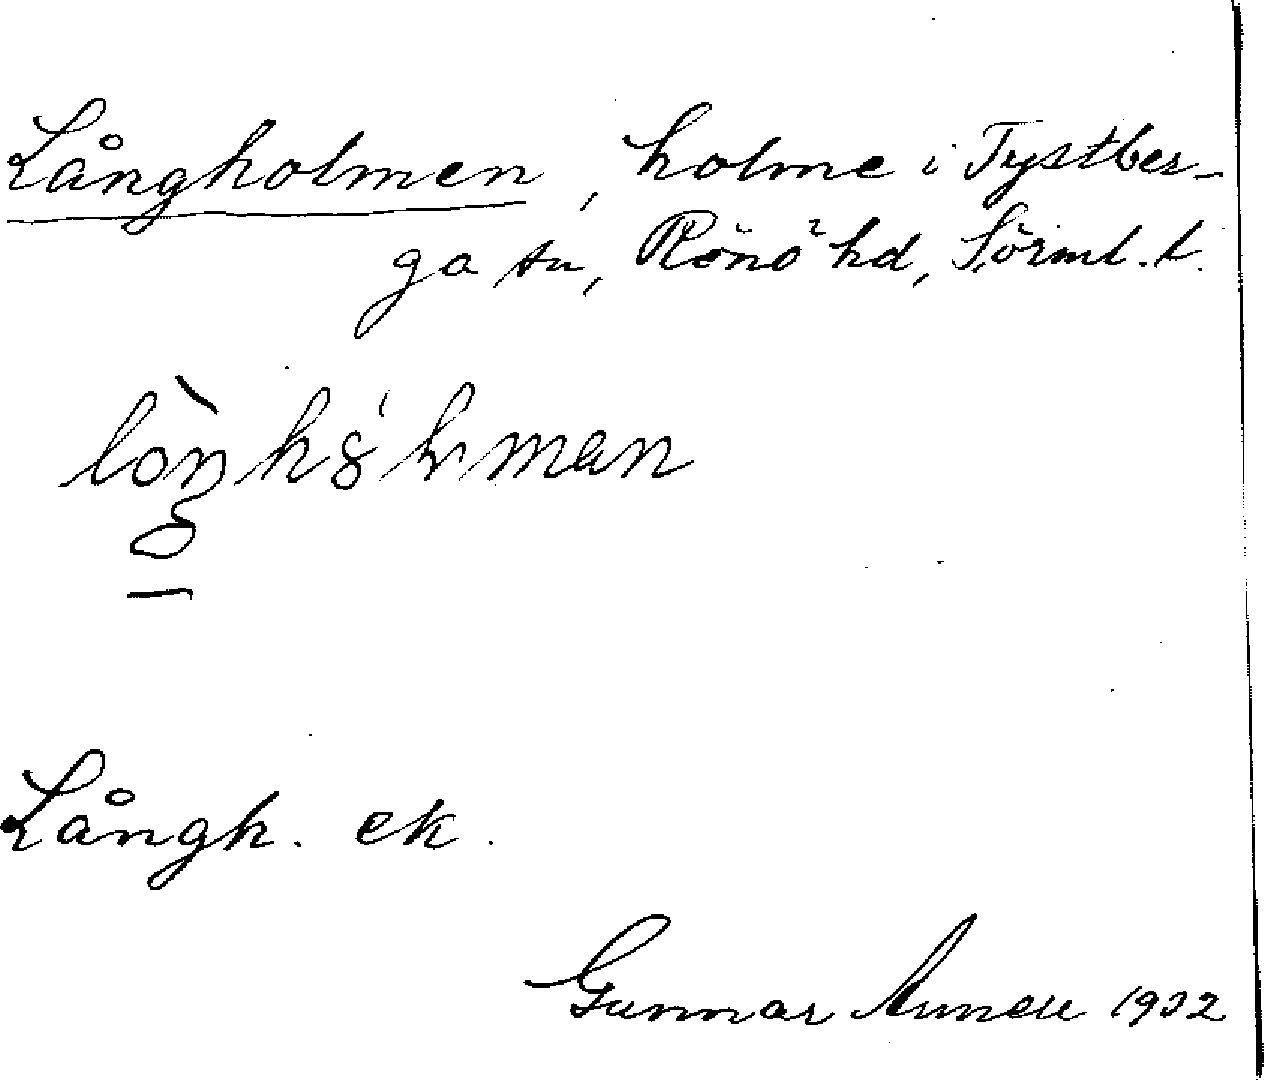 Långholmen, holme i Tystber-
ga sn, Rönö hd, Sörml. l.
Långh. ek.
Gunnar 1932